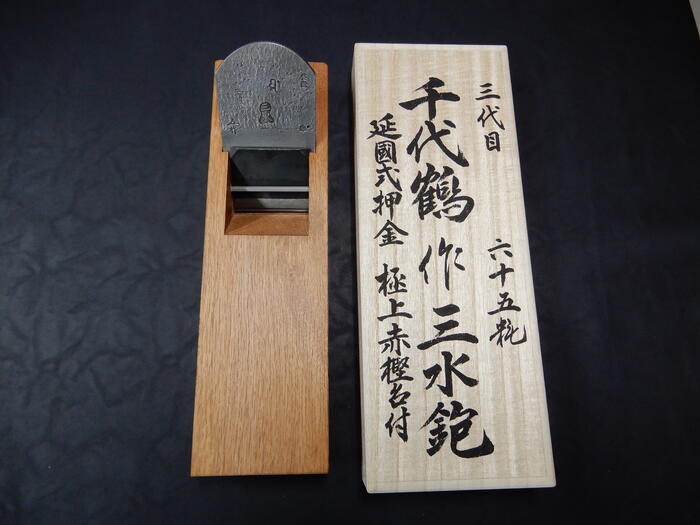 三代目 六十五粍
千代鶴作三水鉋
延國式押金 極上赤樫台付